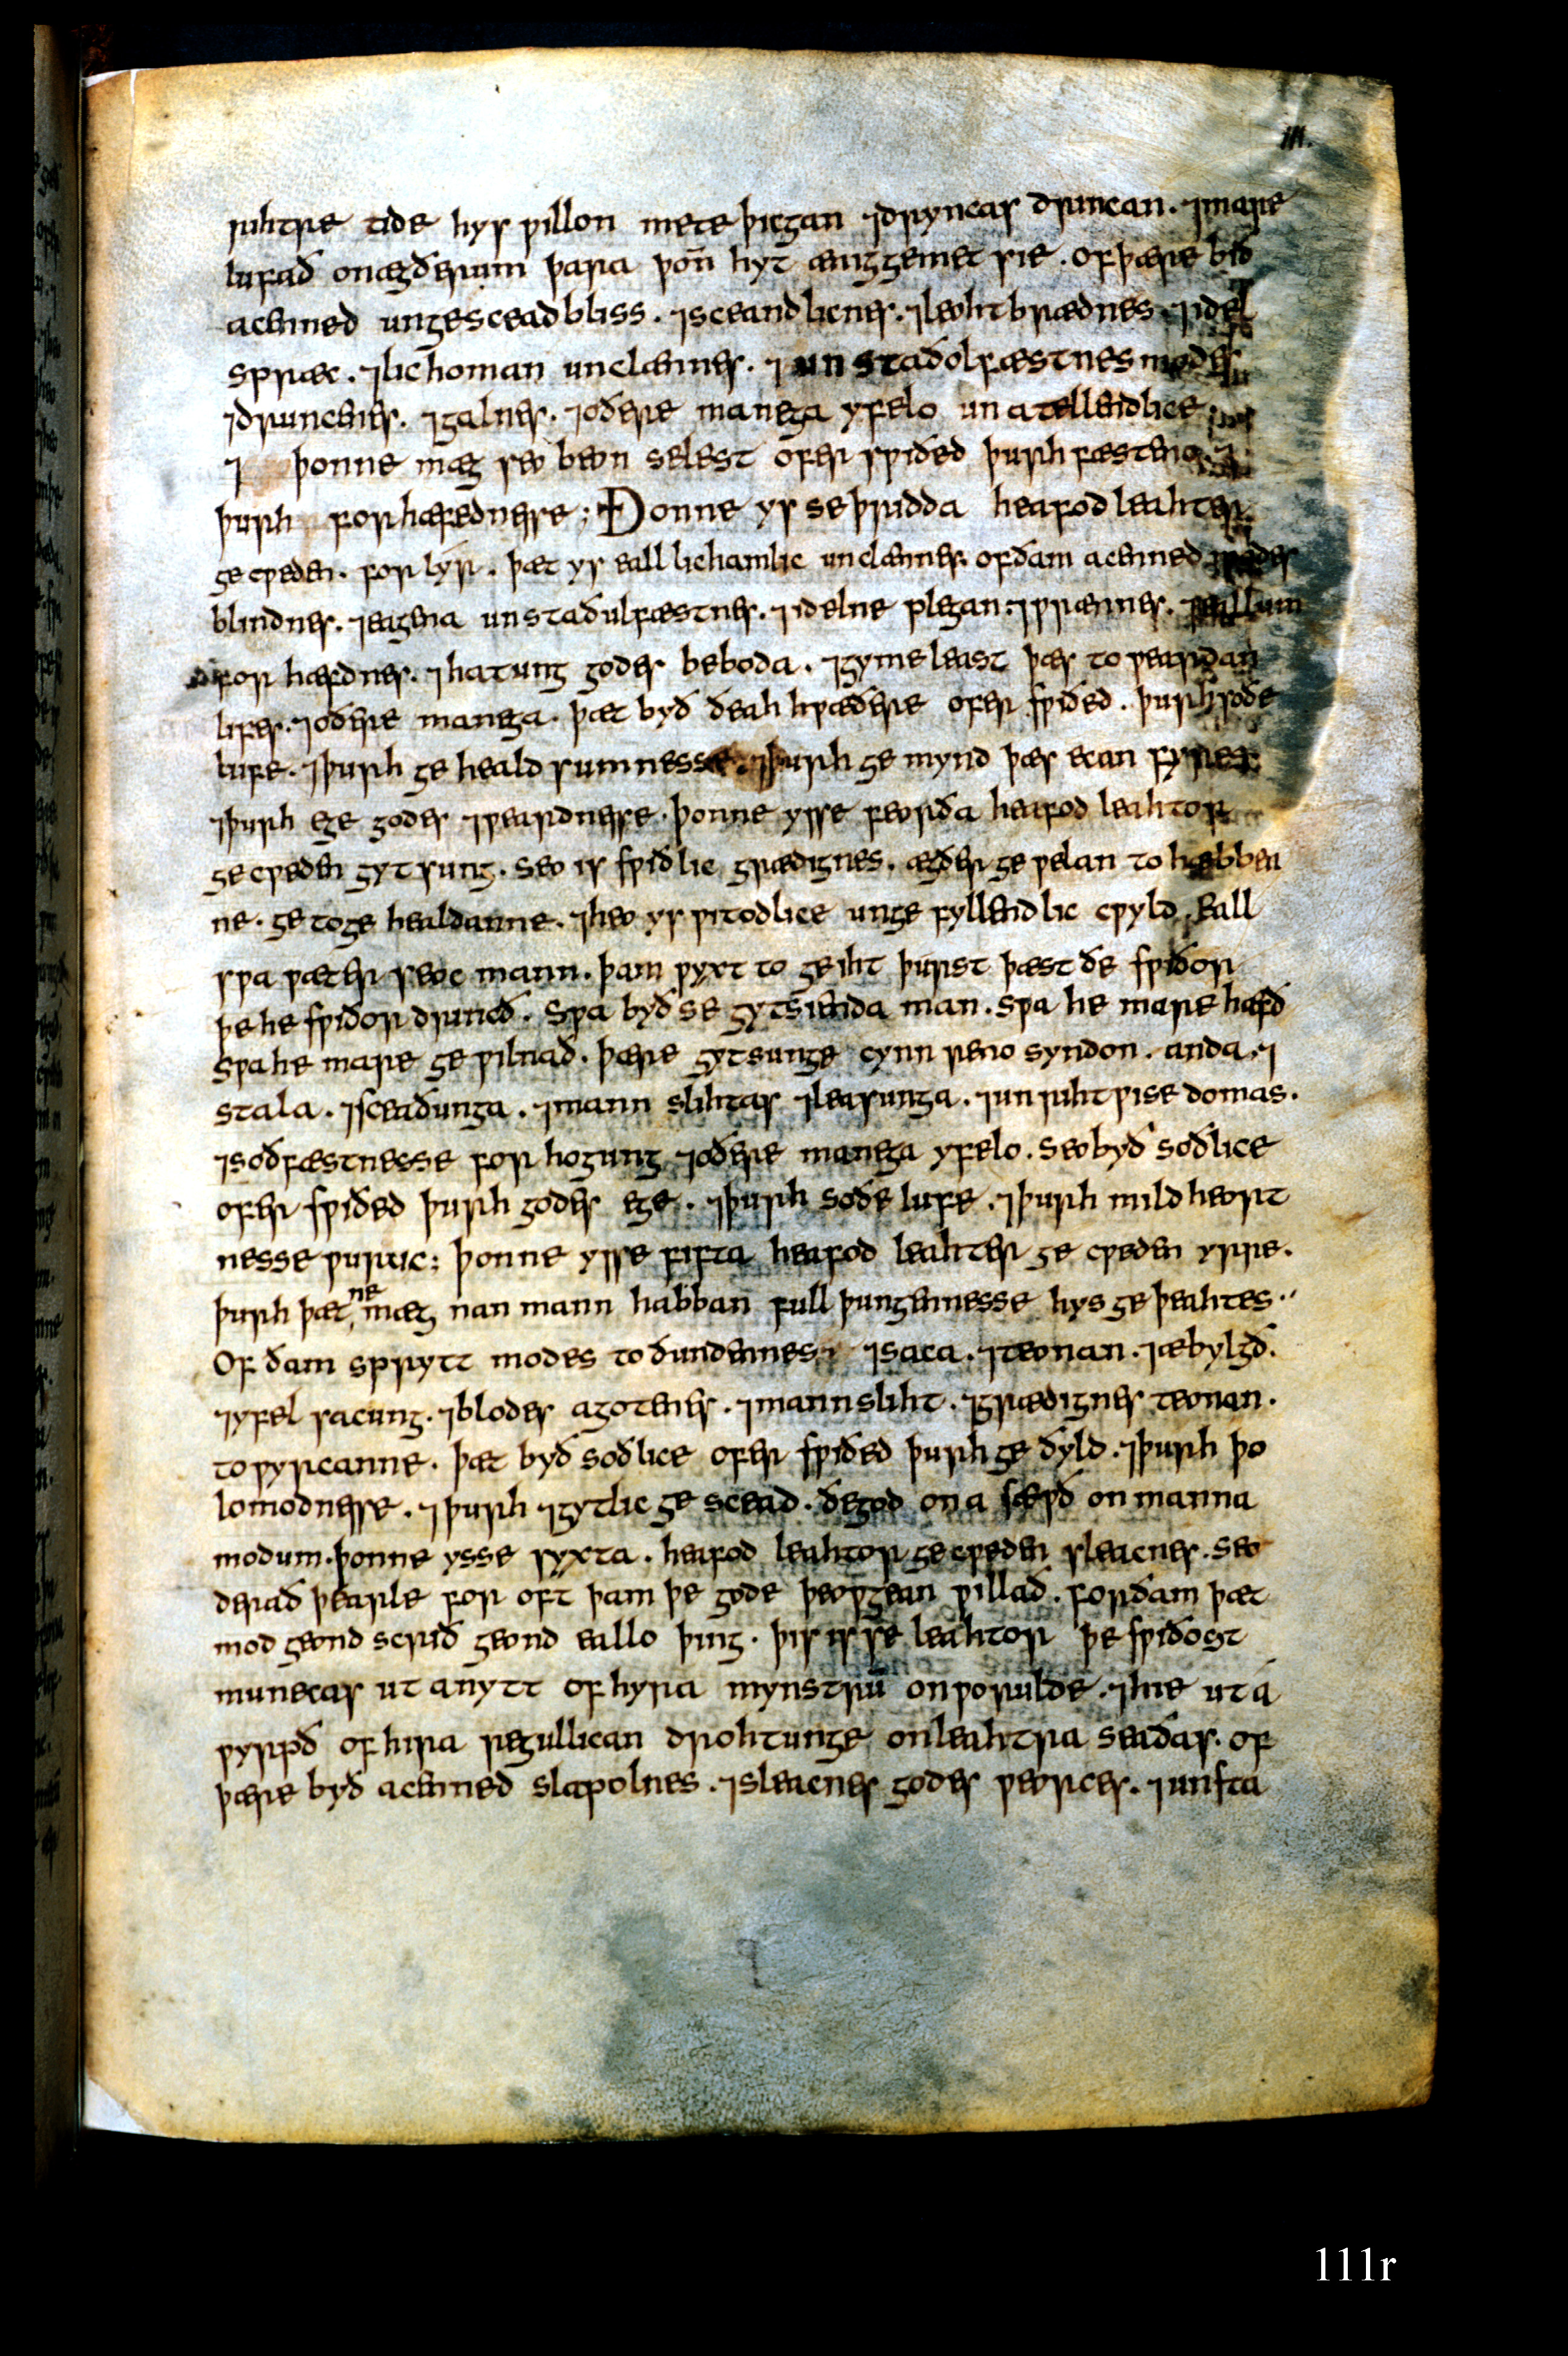 111.
rihtre tide hys ƿillon mete þicgan ⁊dryncas druncan. ⁊mare
lufað onægðerum þara þoñ hyt æniggemet sie. ofþære bið
acenned ungesceadbliss. ⁊sceandlicnes. ⁊leohtbrædnes ⁊idel
spræc. ⁊lichoman unclænnes. ⁊ unstaðolfæstnes modes
⁊druncenes. ⁊galnes. ⁊oðere manega yfelo unatellendlice.
⁊ þonne mæg seo beon selest ofer sƿiðed þurh fæsteno. ⁊
þurh forhæfednesse; Ðonne ys se þridda heafod leahter
ge cƿeden. for lyr. þæt ys eall lichamlic unclænnes. ofðam acenned modes
blindnes. ⁊eagena unstaðulfæstnes. ⁊idelne plegan. ⁊ƿrænnes. ⁊eallum
for hæfdnes. ⁊hatung godes beboda. ⁊gymeleast þæs to ƿeardan
lifes. ⁊oðere manega. þæt byð ðeah hƿæðere ofer sƿiðed. þurh soðe
lufe. ⁊þurh ge heald sumnesse. ⁊þurh ge mynd þæs ecan fyres
⁊þurh ege godes ⁊ƿeardnesse. þonne ysse feorða heafod leahtor
ge cƿeden gytsung. seo is sƿiðlic grædignes. ægðer ge ƿelan to hæbben
ne. ge toge healdanne. ⁊heo ys ƿitodlice unge fyllendlic cƿyld. Eall
sƿa ƿæter seoc mann. þam ƿyxt to geiht þurst þæst ðe sƿiðor
þe he sƿiðor drincð. Sƿa byð se gytsienda man. sƿa he mare hæfð
sƿa he mare ge ƿilnað. þære gytsunge cynn reno syndon. anda. ⁊
stala. ⁊sceaðunga. ⁊mann slihtas ⁊leasunga. ⁊un rihtƿise domas.
⁊soðfæstnesse for hogung ⁊oðere manega yfelo. seo byð soðlice
ofer sƿiðed þurh godes ege. ⁊þurh soðe lufe. ⁊þurh mild heort
nesse ƿurcic; þonne ysse fifta heafod leahter ge cƿeden yrre.
þurh þæt ne mæg nan mann habban full þungennesse hys ge þeahtes.
Of ðam sprytt modes to ðundennes ⁊saca. ⁊teonan. ⁊æbylgð.
⁊yfel sacung. ⁊blodes agotenes. ⁊mannsliht. ⁊grædignes teonan.
to ƿyrcanne. þæt byð soðlice ofer sƿiðed þurh ge ðyld. ⁊þurh þo
lomodnesse. ⁊þurh ⁊gytlic ge scead. ðegod on a sæƿð on manna
modum. þonne ysse syxta. heafod leahtor ge cƿeden sleacnes. seo
derað þearle for oft þam þe gode þeoƿgean ƿillað. forðam þæt
mod geond scrið geond eallo þing. þis is se leahtor þe sƿiðost
munecas ut anytt of hyra mynstrū onƿorulde. ⁊hie ut á
ƿyrpð of hira regullican drohtunge onleahtra seaðas. of
þære byð acenned slapolnes. ⁊sleacnes godes ƿeorces. ⁊unsta
111r